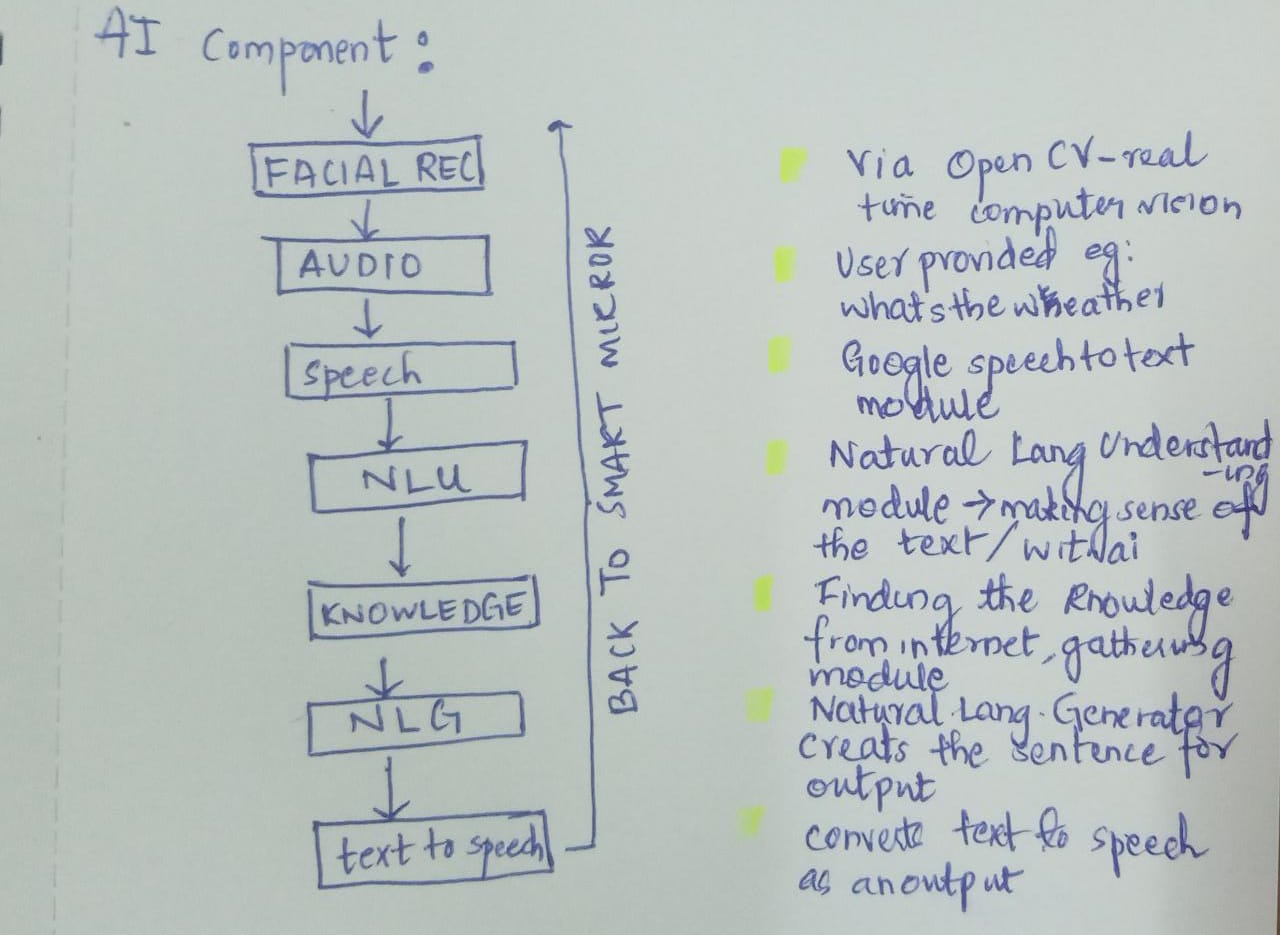 AI Component:
FACIAL REC
AUDIO
Speech
NLU
KNOWLEDGE
NLG
text to speech
BACK TO SMART MIRROR
Via Open CV-real
time computer vision
User provided eg:
whats the wheather
Google speech to text
module
Natural Lang Understand
-ing
module → making sense of
the text/wit.ai
Finding the knowledge
from internet, gathering
module
Natural Lang. Generator
creats the sentence for
output
converts text to speech
as an output